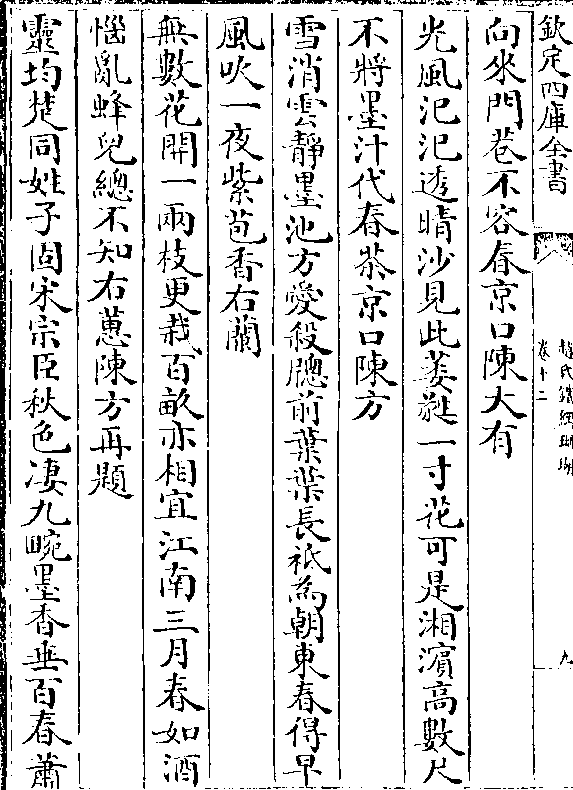 欽定四庫全書
趙氏鐵網珊瑚
卷十二
九
向來門巷不容春京口陳大有
光風汜汜透晴沙見此葳蕤一寸花可是湘濵高數尺
不將墨汁代春茶京口陳方
雪消雲靜墨池方愛殺牕前葉葉長祇為朝東春得早
風吹一夜紫苞香右蘭
無數花開一兩枝更栽百畝亦相宜江南三月春如酒
惱亂蜂兒總不知右蕙陳方再題
靈均楚同姓子固宋宗臣秋色凄九畹墨香垂百春蕭